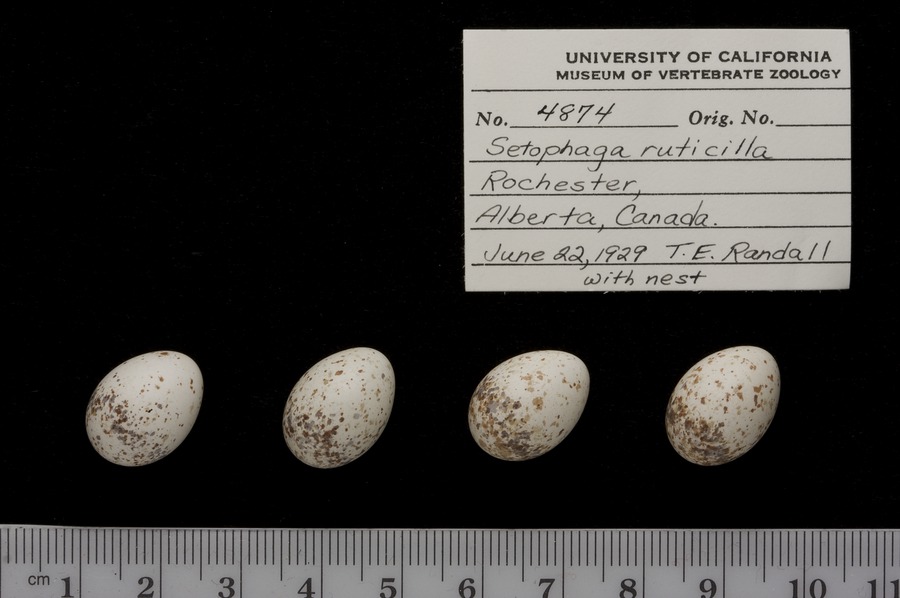 UNIVERSITY OF CALIFORNIA
MUSEUM OF VERTEBRATE ZOOLOGY
No. 4874 Orig. No.
Setophaga ruticilla
Rochester,
Alberta, Canada.
June 22, 1929 T.E. Randall
with nest
cm 1 2 3 4 5 6 7 8 9 10 11